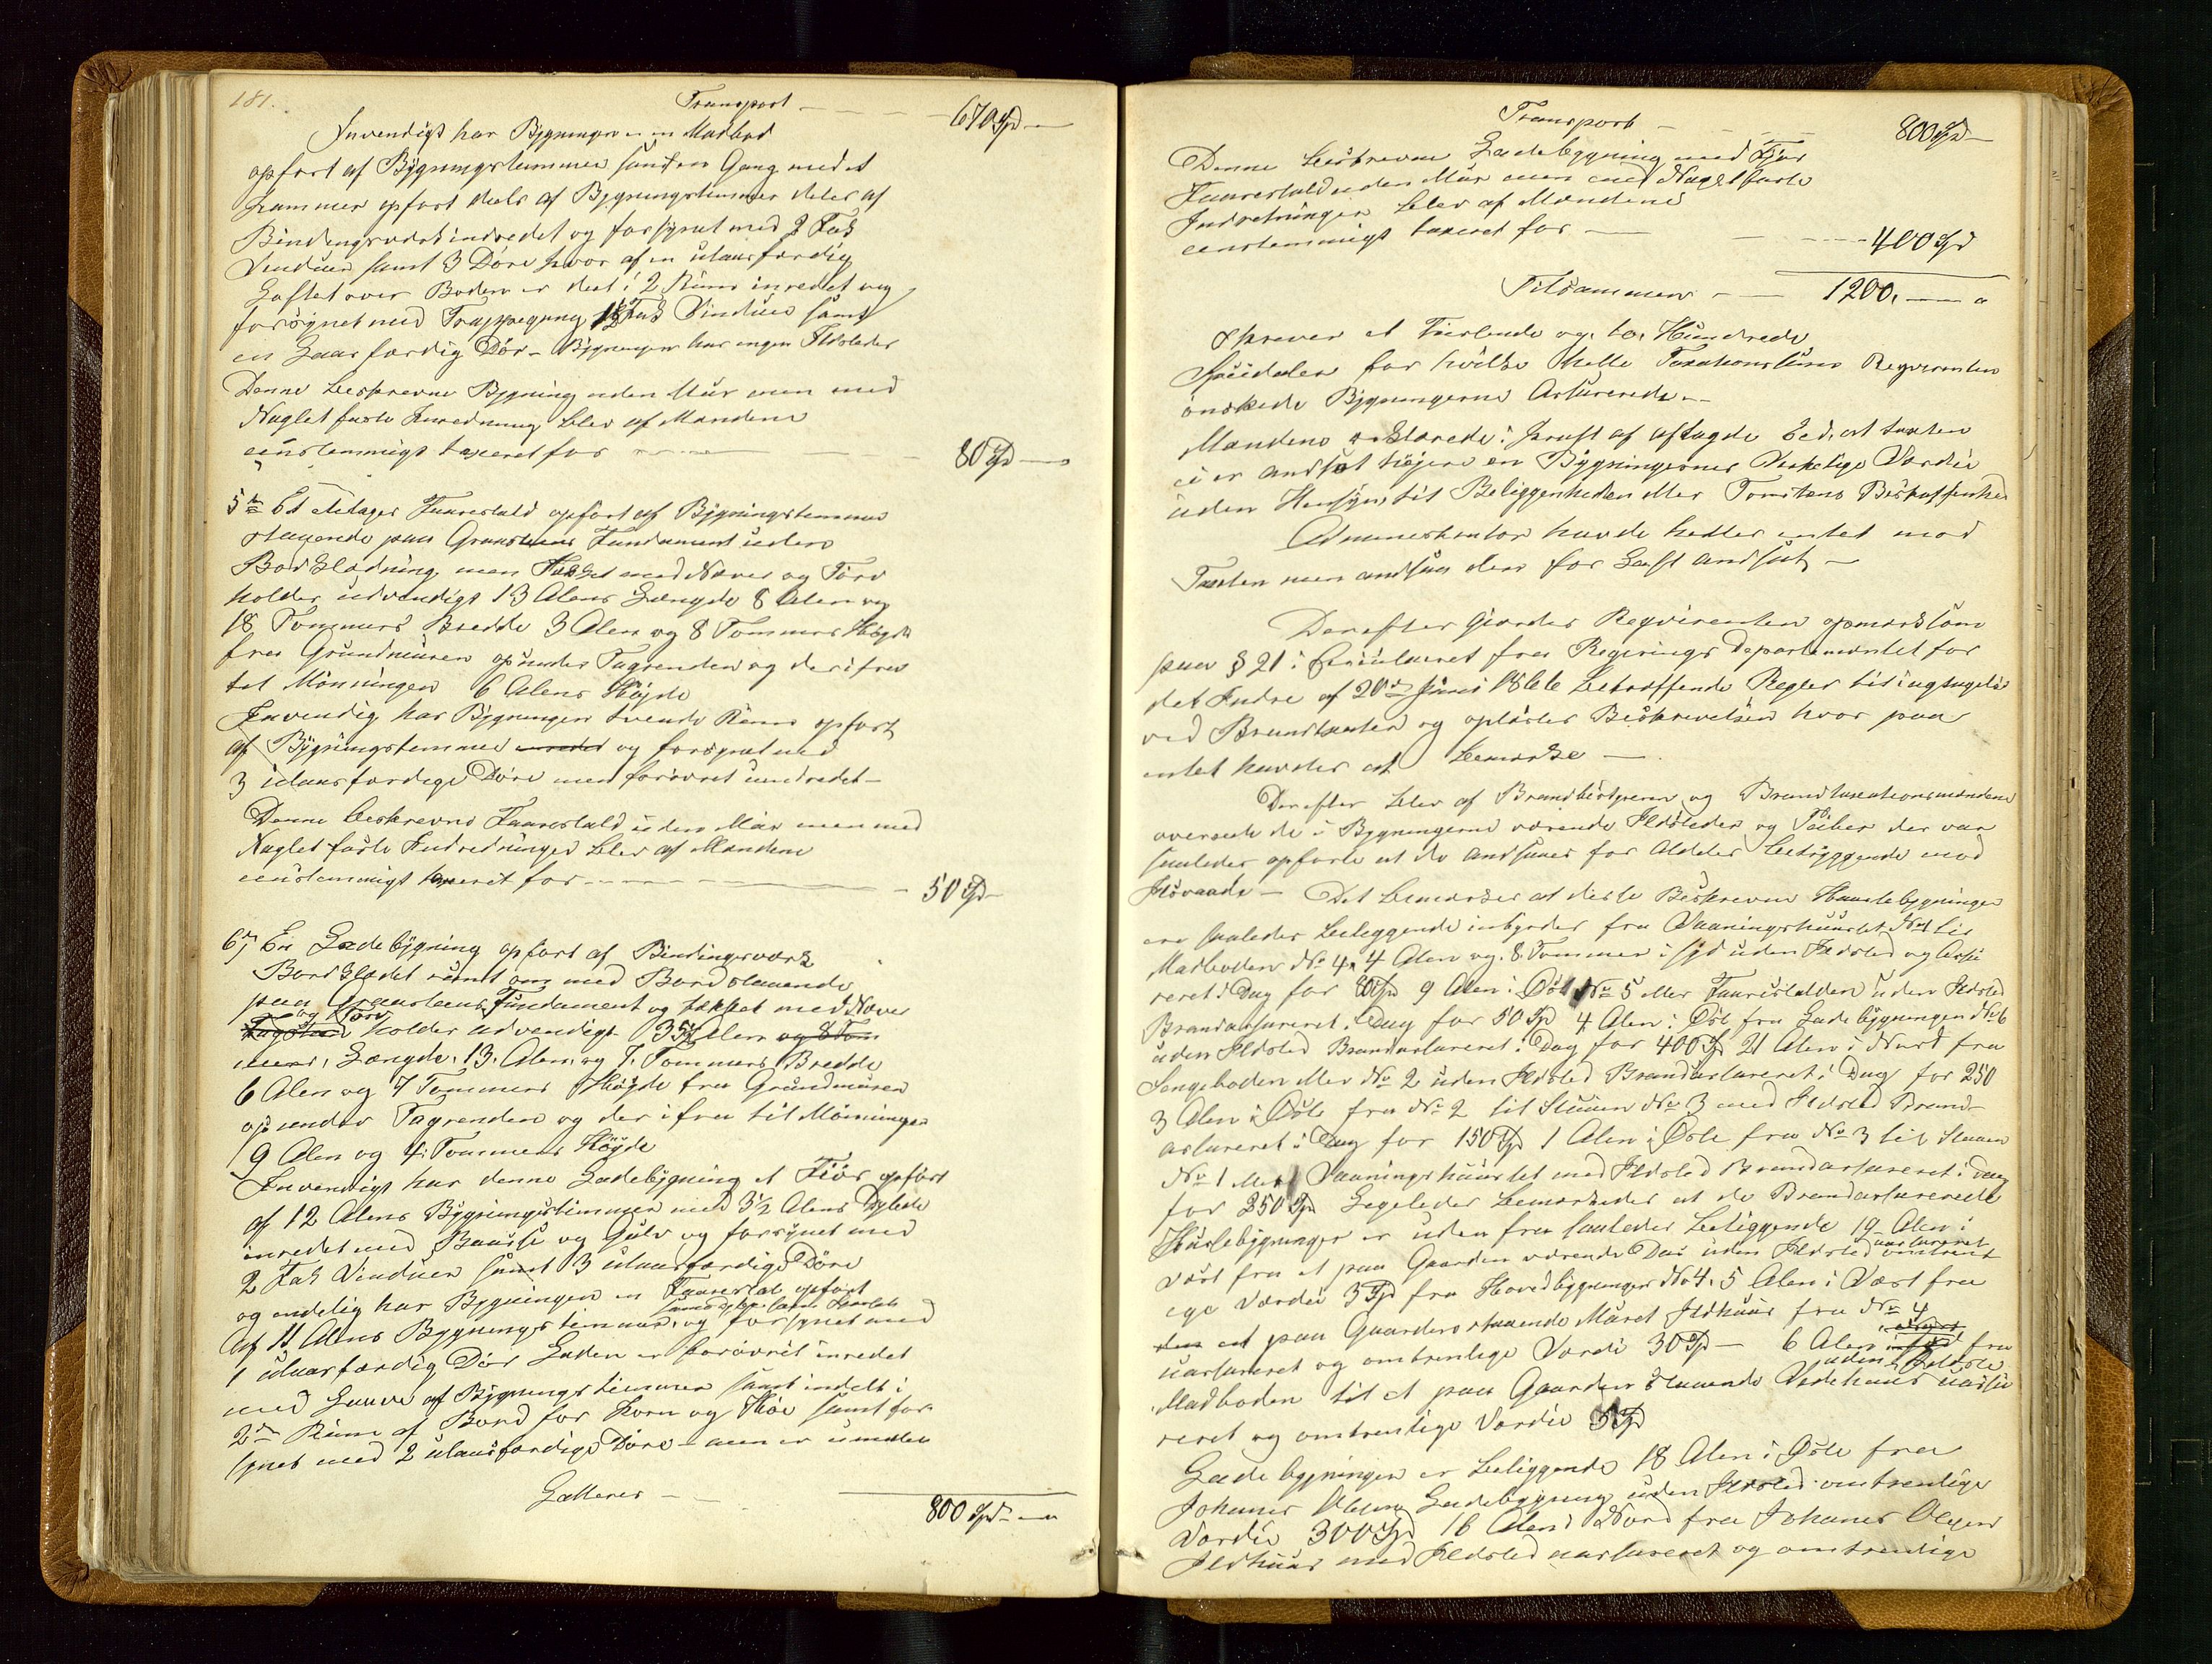 181.
Transport — — — 670 Spd —
Invendigt har Bygningen en Madbod
opfört af Bygningstömmer samt en Gang med et
Kammer opfört deels af Bygningstömmer deles af
Bindingsværk indredet og forsynet med 2 Fak
Vinduer samt 3 Döre hvor af en udaasfærdig
Loftet over Boden er deel i 2 Rum inredet og
forsögnet med Trappegang 1½ Fak Vinduer samt
en Laasfærdig Dör — Bygningen har ingen Ildsteder
Denne beskrevne Bygning uden Mur men med
Naglefaste Inredning blev af Mændene
eenstemmigt taxeret for — — — 80 Spd —
5te Et etetages Faarestald opfört af Bygningstömmer
staaende paa Graasteens Fundament uden
Bordklædning men Tækket med Næver og Törv
holder udvendigt 13 Alens Længde 8 Alen og
18 Tommers Bredde 3 Alen og 8 Tommers Höyde
fra Grundmuren op under Tagrenden og derifra
til Mönningen 6 Alens Höyde
Invendig har Bygningen tvende Rum opfört
af Bygningstömmer inredet og forsynet med
3 ulaasfærdige Döre men forövret uindredet —
Denne beskrevne Faarestald uden Mur men med
Naglefaste Indredninger blev af Mændene
eenstemmigt taxeret for — — — 50 Spd —
6) En Ladebygning opfört af Bindingsværk
Bordklædet rundt om med Bord staaende
paa Graasteens Fundament og tækket med Næver
og Törv
Tagsteen holder udvendigt 35 Alen og 8 Tom
mers, Længde, 13, Alen, og 7, Tommers Bredde
6 Alen og 7 Tommers Höyde fra Grundmuren
op under Tagrenden og der ifra til Mönningen
9 Alen og 4 Tommers Höyde
Invendigt har denne Ladebygning et Fiös opfört
af 12 Alens Bygningstömmer med 3½ Alens Dybde
inredet med Baase og Gulv og forsynet med
2 Fak Vinduer samt 3 ulaasfærdige Döre
og endelig har Bygningen en Faarestal opfört
af 11 Alens Bygningstömmer, og forsynet med
1 ulaasfærdig Dör Laden er forövrit inredet
med Lauve af Bygningstömmer samt indelt i
2de Rum af Bord for Korn og Höe samt for
synet med 2 ulaasfærdige Döre — men er uinden
Latteres — — 800 Spd —
Transport — — — 800 Spd —
Denne beskrevne Ladebygning med Fjös
Faarestald uden Mur men med Naglefaste
Indretninger blev af Mændene
eenstemmigt taxeret for — — — 400 Spd
Tilsammen — — 1200, — "
skriver et Tusende og, to, Hundrede,
Speciedaler for hvilke hele Taxationssum Reqvirenten
önskede Bygningerne Assurerede —
Mændene erklærede i Kraft af aflagde Eed, at taxten
ei er andsat höjere en Bygningernes Verkelige Værdie
uden Hensyn, til Beliggenheden eller Tomtens Beskaffenhed
Administrator havde heller intet mod
Taxten men andsaa den for Lavt andsat —
Derefter giordes Reqvirenten opmærksom
paa § 21 i Circulæret fra Regerings Departementet for
det Indre af 20de Juni 1846 betræffende Regler til iagtagelse
ved Brandtaxter og oplæstes Beskrivelsen hvor paa
intet havdes at bemærke —
Derefter blev af Brandbestyreren og Brandtaxationsmændene
overseede de i Bygningerne værende Ildsteder og Piber der var
saaledes opförte at de andsaaes for Aldeles betryggende mod
Ildsvaade — Det bemærkes at disse Beskrevne Huusebygninger
ere saaledes beliggende inbyrdes fra Vaaningshuuset No 1 til
Madboden No 4, 4 Alen og 8 Tommer i syd uden Ildsted og Assu
reret i Dag for 80 Spd 9 Alen i Öst No 5 eller Faarestalden uden Ildsted
Brandassureret i Dag for 50 Spd 4 Alen i Öst fra Ladebygningen No 6
uden Ildsted Brandassureret i Dag for 400 Spd 21 Alen i Nord fra
Sengeboden eller No 2 uden Ildsted Brandassureret i Dag for 250
3 Alen i Öst fra No 2 til Stuen No 3 med Ildsted Brand-
assureret i Dag for 150 Spd 1 Alen i Öst fra No 3 til Stuen
No 1 eller Vaaningshuuset med Ildsted Brandassureret i Dag
for 350 Spd Ligeledes bemærkedes at de Brandassurerede
Huusebygninger er uden fra saaledes beliggende 19 Alen i
uassureret
Vest fra et paa Gaarden værende Das uden Ildsted omtrent
lige Værdie 3 Spd fra Hovedbygningen No 4, 5 Alen i Vest fra
den et paa Gaarden staaende Muret Ildhuus fra No 4
uassureret og omtrentlige Værdi 30 Spd — 6 Alen i syd fra
uden Ildsted
Madboden til et paa Gaarden staaende Vedehuus uassu
reret og omtrentlige Værdie 5 Spd
Ladebygningen er beliggende 18 Alen i Öst fra
Johanes Olsens Ladebygning uden Ildsted omtrentlige
Værdie 300 Spd 16 Alen i Nord fra Johanes Olsens
Ildhuus med Ildsted uassureret og omtrentlige